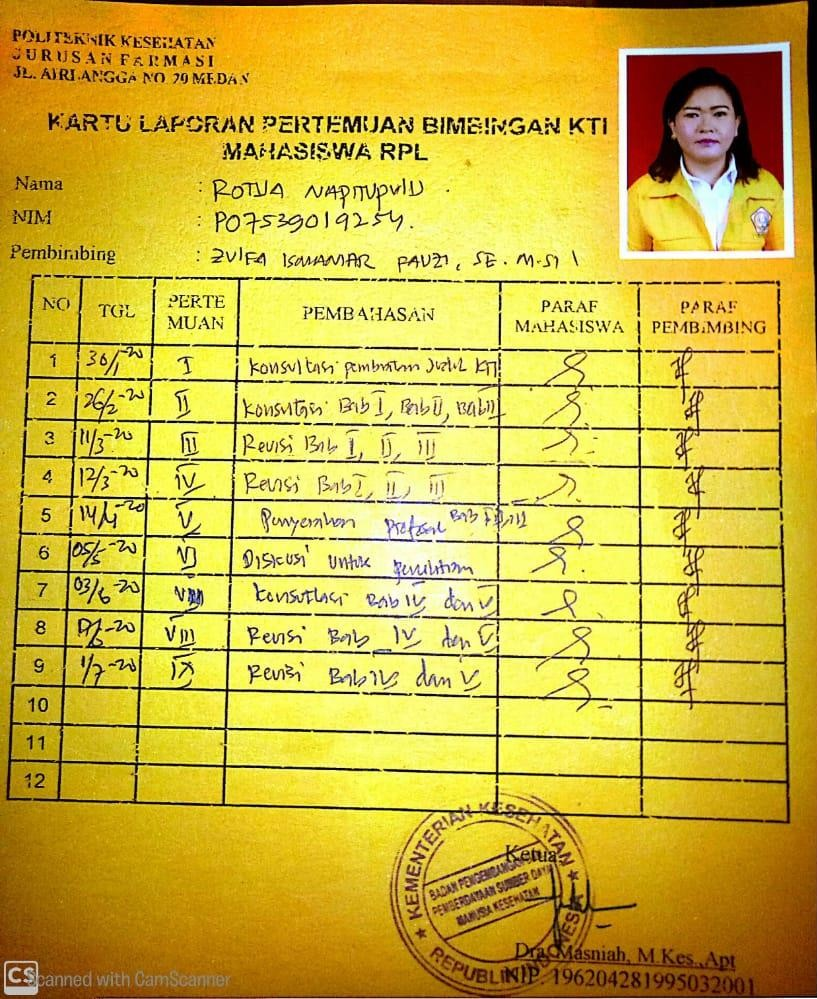 POLITEKNIK KESEHATAN
JURUSAN FARMASI
JL. AIRLANGGA NO. 20 MEDAN
KARTU LAPORAN PERTEMUAN BIMBINGAN KTI
MAHASISWA RPL
Nama : ROTUA NAPITUPULU
NIM : P07539019254.
Pembimbing : ZULFA ISMANIAR FAUZI, SE. M.Si
NO TGL PERTEMUAN PEMBAHASAN PARAF MAHASISWA PARAF PEMBIMBING
1 30/1-20 I Konsultasi pembuatan Judul KTI
2 26/2-20 II Konsultasi Bab I, Bab II, Bab III
3 11/3-20 III Revisi Bab I, II, III
4 12/3-20 IV Revisi Bab I, II, III
5 14/4-20 V Penyerahan Proposal Bab I, II, III
6 05/5-20 VI Diskusi untuk penelitian
7 03/6-20 VII Konsultasi Bab IV dan V
8 VIII Revisi Bab IV dan V
9 1/7-20 IX Revisi Bab IV dan V
10
11
12
KEMENTERIAN KESEHATAN
BADAN PENGEMBANGAN DAN
PEMBERDAYAAN SUMBER DAYA
MANUSIA KESEHATAN
REPUBLIK INDONESIA
Ketua
Dra. Masniah, M.Kes.,Apt
NIP. 196204281995032001
CS Scanned with CamScanner